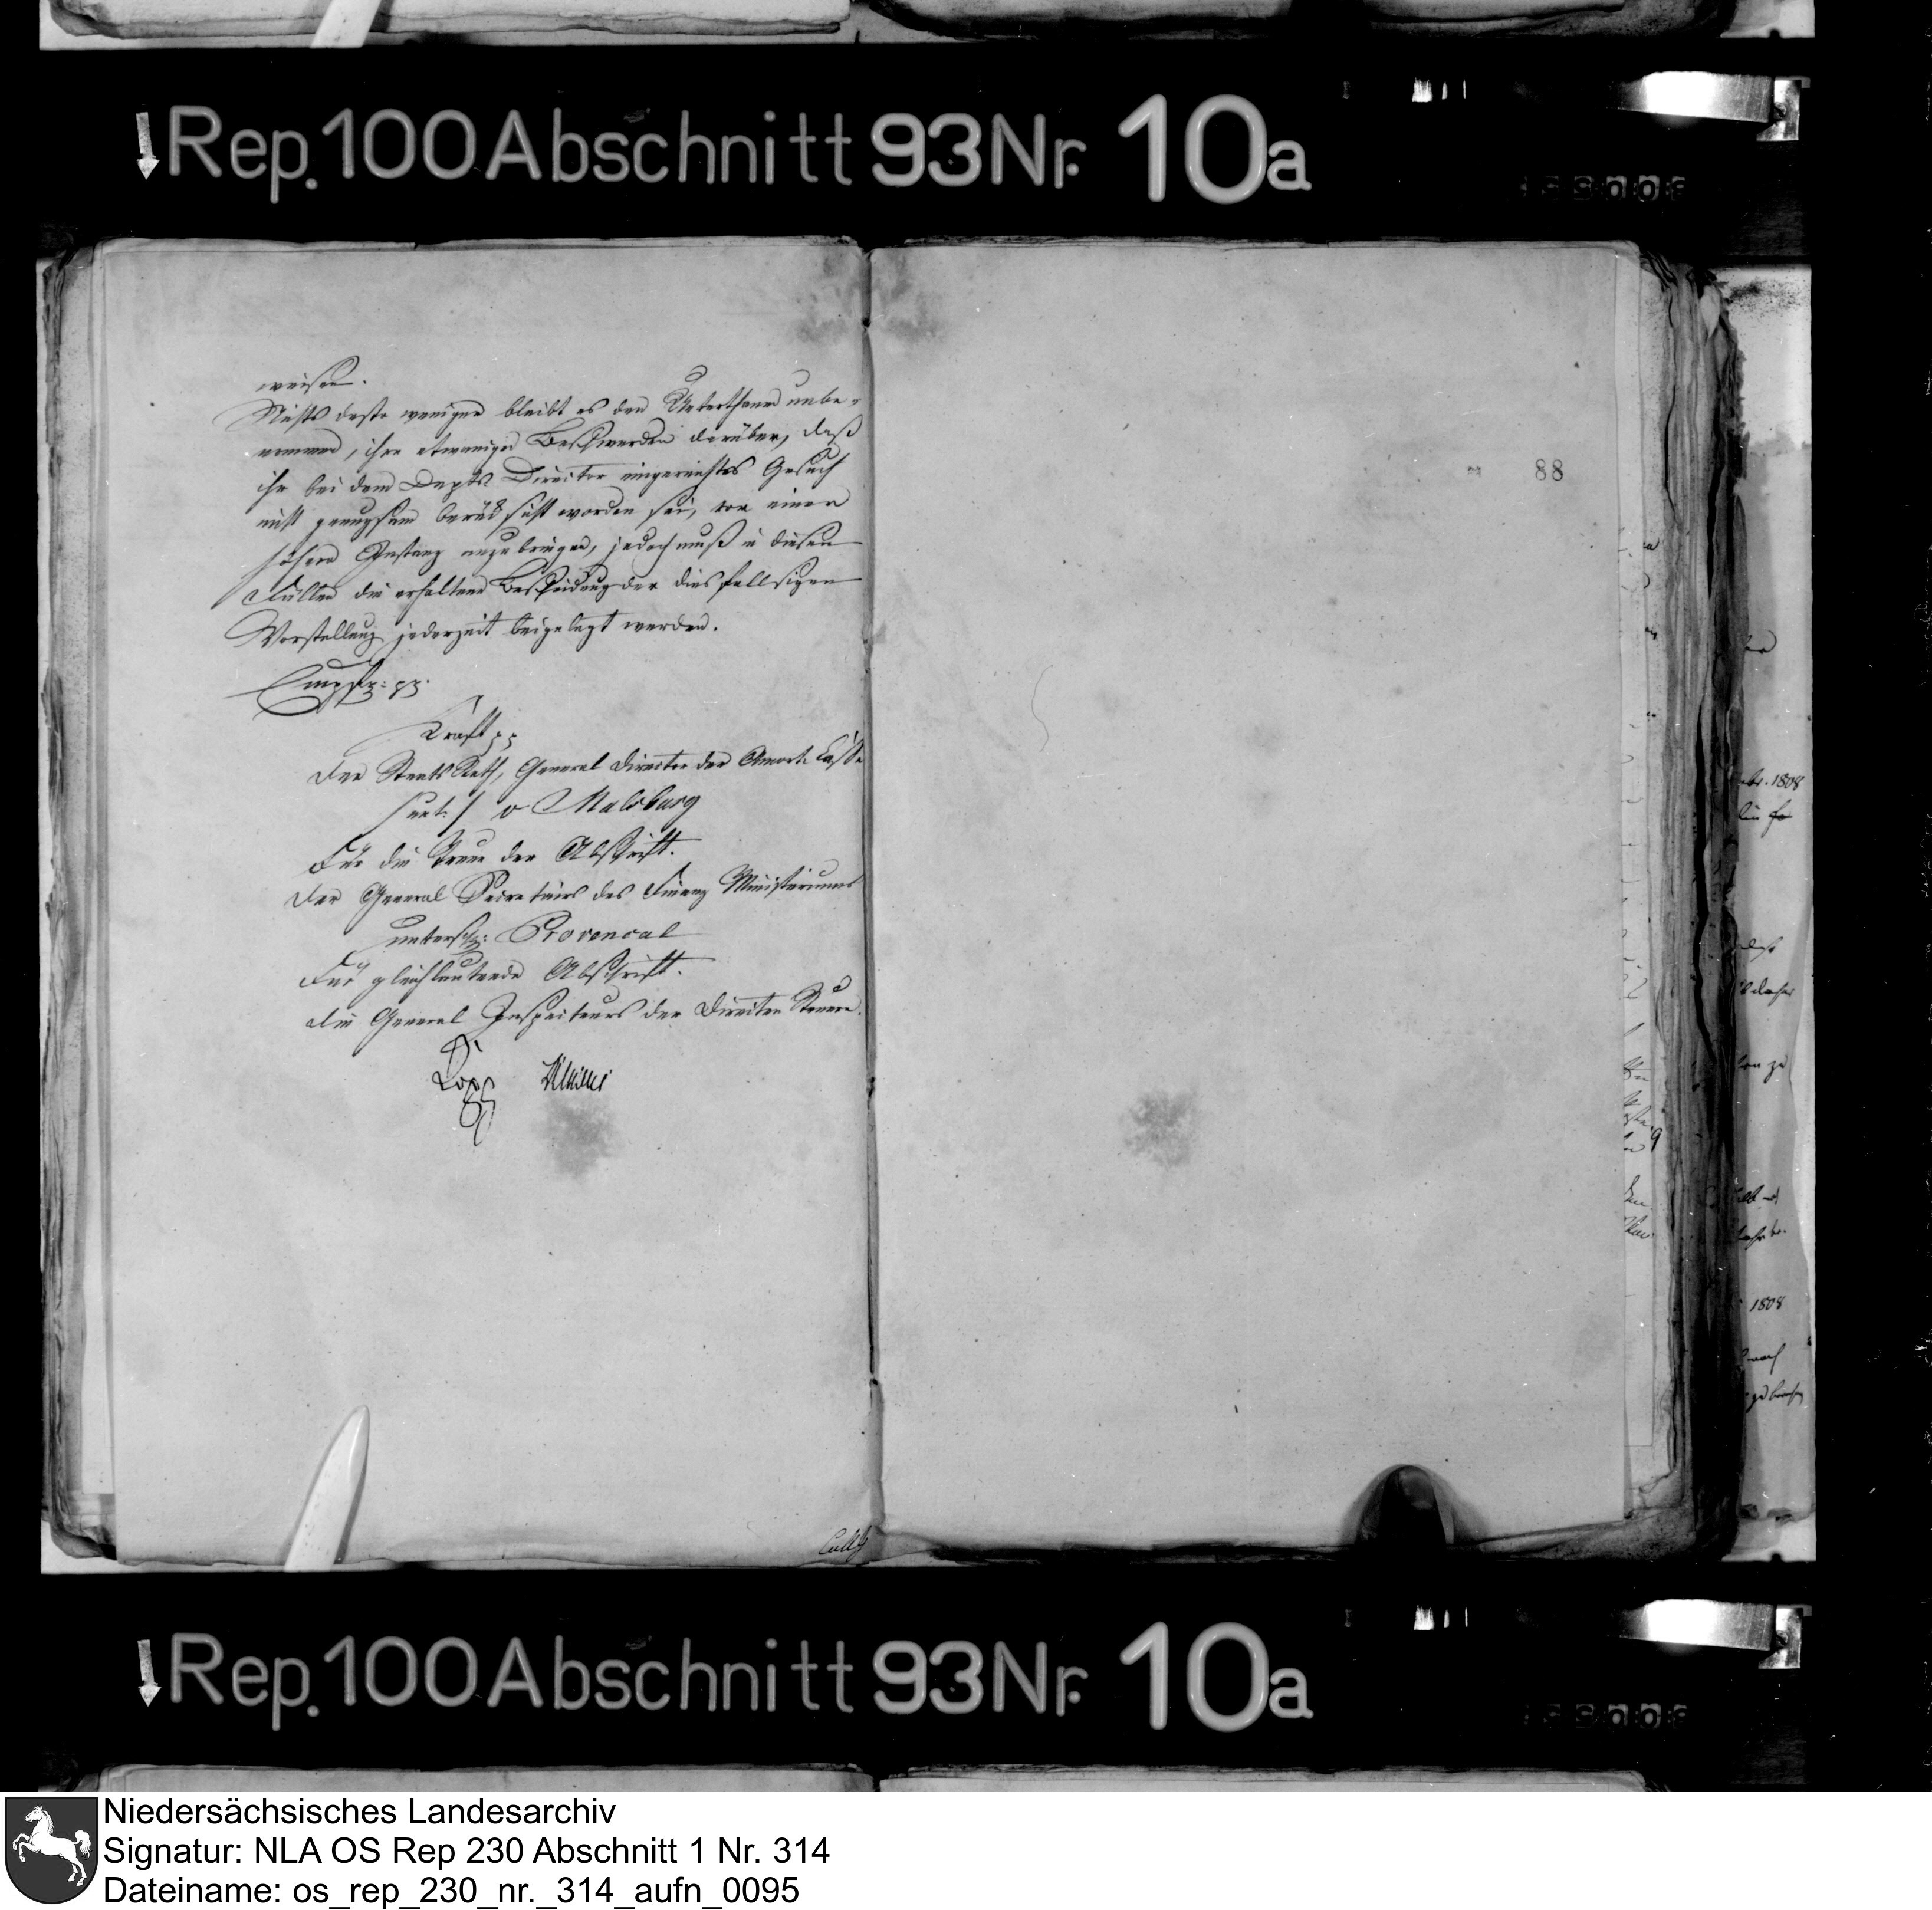 Rep. 100 Abschnitt 93 Nr. 10a
weisen.
Nichts desto weniger bleibt es den Unterthanen unbe-
nommen, ihre etwanigen Beschwerden darüber, daß
ihr bei dem Depts Director eingereichtes Gesuch
nicht genugsam berücksicht worden sei, vor einer
höhern Instanz anzubringen, jedoch muß in diesen
Fällen die erhaltene Bescheidung der diesfallsigen
Vorstellung jederzeit beigelegt werden.
Kraft pp
Der Staats Rath, General Director der Amort. Casse
v Malsburg
Für die Treue der Abschrift.
Der General Secretairs des Finanz Ministeriums
untersch: Provencal
Für gleichlautende Abschrift.
Die General Inspecteurs der Directen Steuern.
88
br. 1808
1808
Rep. 100 Abschnitt 93 Nr. 10a
Niedersächsisches Landesarchiv
Signatur: NLA OS Rep 230 Abschnitt 1 Nr. 314
Dateiname: os_rep_230_nr._314_aufn_0095